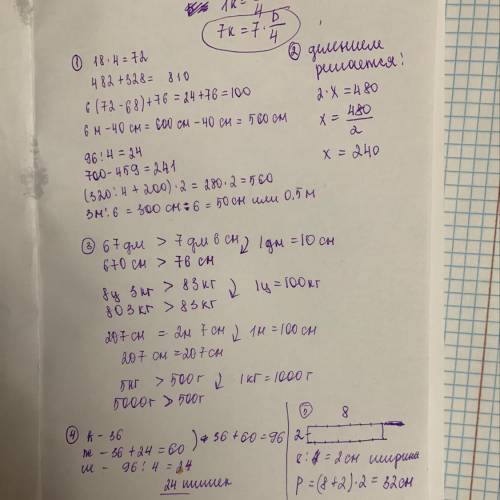 7к = 7 · b/4
① 18 · 4 = 72
482 + 328 = 810
6(72 - 68) + 76 = 24 + 76 = 100
6 м - 40 см = 600 см - 40 см = 560 см
96 : 4 = 24
700 - 459 = 241
(320 : 4 + 200) · 2 = 280 · 2 = 560
3м : 6 = 300 см : 6 = 50 см или 0,5 м
② делением
решается:
2 · x = 480
x = 480/2
x = 240
③ 67 дм > 7 дм 6 см ) 1 дм = 10 см
670 см > 76 см
8ц 3 кг > 83 кг ) 1ц = 100 кг
803 кг > 83 кг
207 см = 2м 7 см ) 1м = 100 см
207 см = 207 см
5кг > 500 г ) 1кг = 1000 г
5000 г > 500 г
④ к - 36
ж - 36 + 24 = 60 ) 36 + 60 = 96
ш - 96 : 4 = 24
24 шишек
⑤ 8
2
8 : 4 = 2 см ширина
P = (8 + 2) · 2 = 32 см